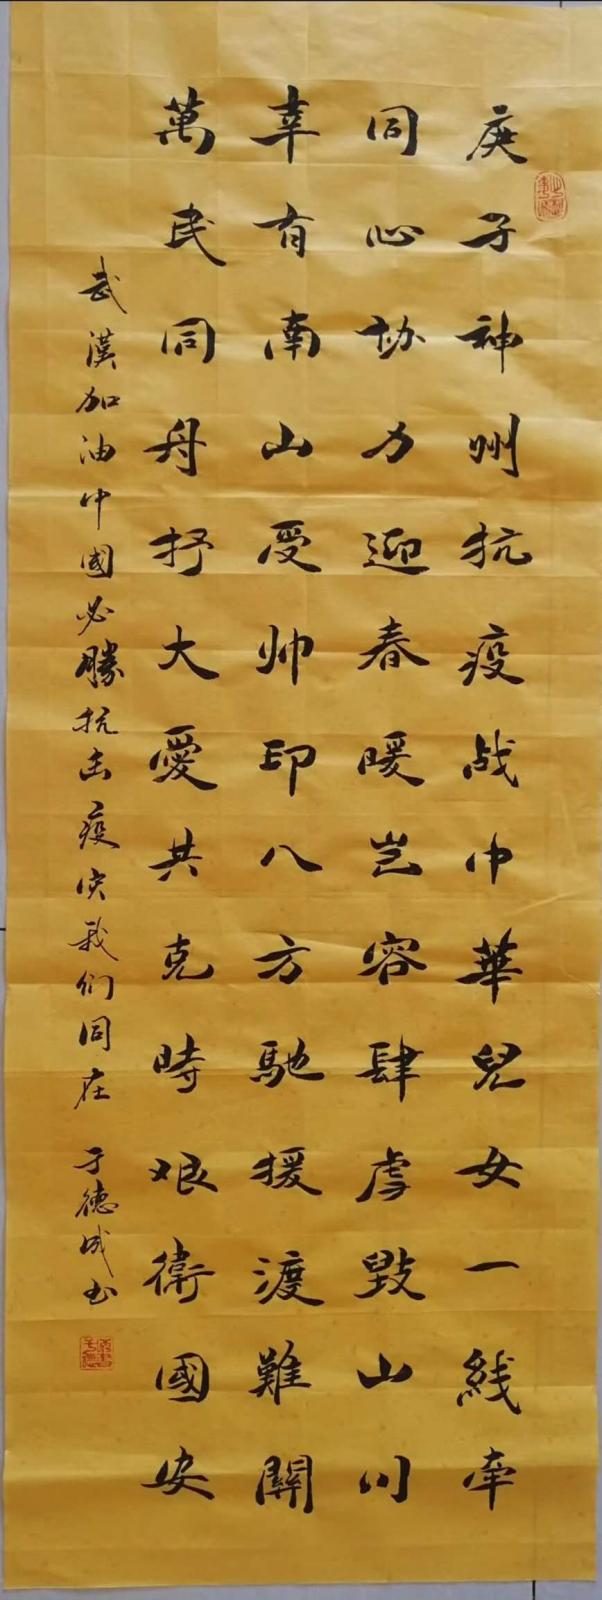 庚子神州抗疫战中華兒女一綫牽
同心协力迎春暖岂容肆虐毀山川
幸有南山受帅印八方馳援渡難關
萬民同舟抒大愛共克時艰衛國安
武漢加油中國必勝抗击疫灾我们同在 于德成书